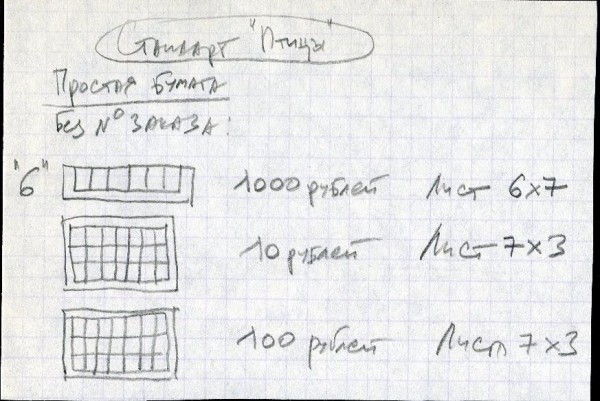 Стандарт "Птицы"
Простая бумага
Без № заказа:
"6" 1000 рублей Лист 6x7
10 рублей Лист 7x3
100 рублей Лист 7x3